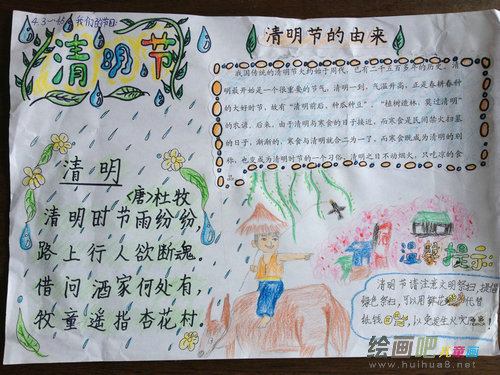 4.3—4.5 我们的节日:
清明节
清明节的由来
我国传统的清明节大约始于周代,已有二千五百多年的历史。清
明最开始是一个很重要的节气,清明一到,气温升高,正是春耕春种
的大好时节,故有“清明前后,种瓜种豆”。“植树造林,莫过清明”
的农谚。后来,由于清明与寒食的日子接近,而寒食是民间禁火扫墓
的日子,渐渐的,寒食与清明就合二为一了,而寒食既成为清明的别
称,也变成为清明时节的一个习俗,清明之日不动烟火,只吃凉的食
品。
清明
<唐>杜牧
清明时节雨纷纷,
路上行人欲断魂。
借问酒家何处有,
牧童遥指杏花村.
温馨提示:
清明节请注意文明祭扫,提倡
绿色祭扫,可以用鲜花代替
纸钱,以免发生火灾隐患!
绘画吧 儿童画
www.huihua8.net